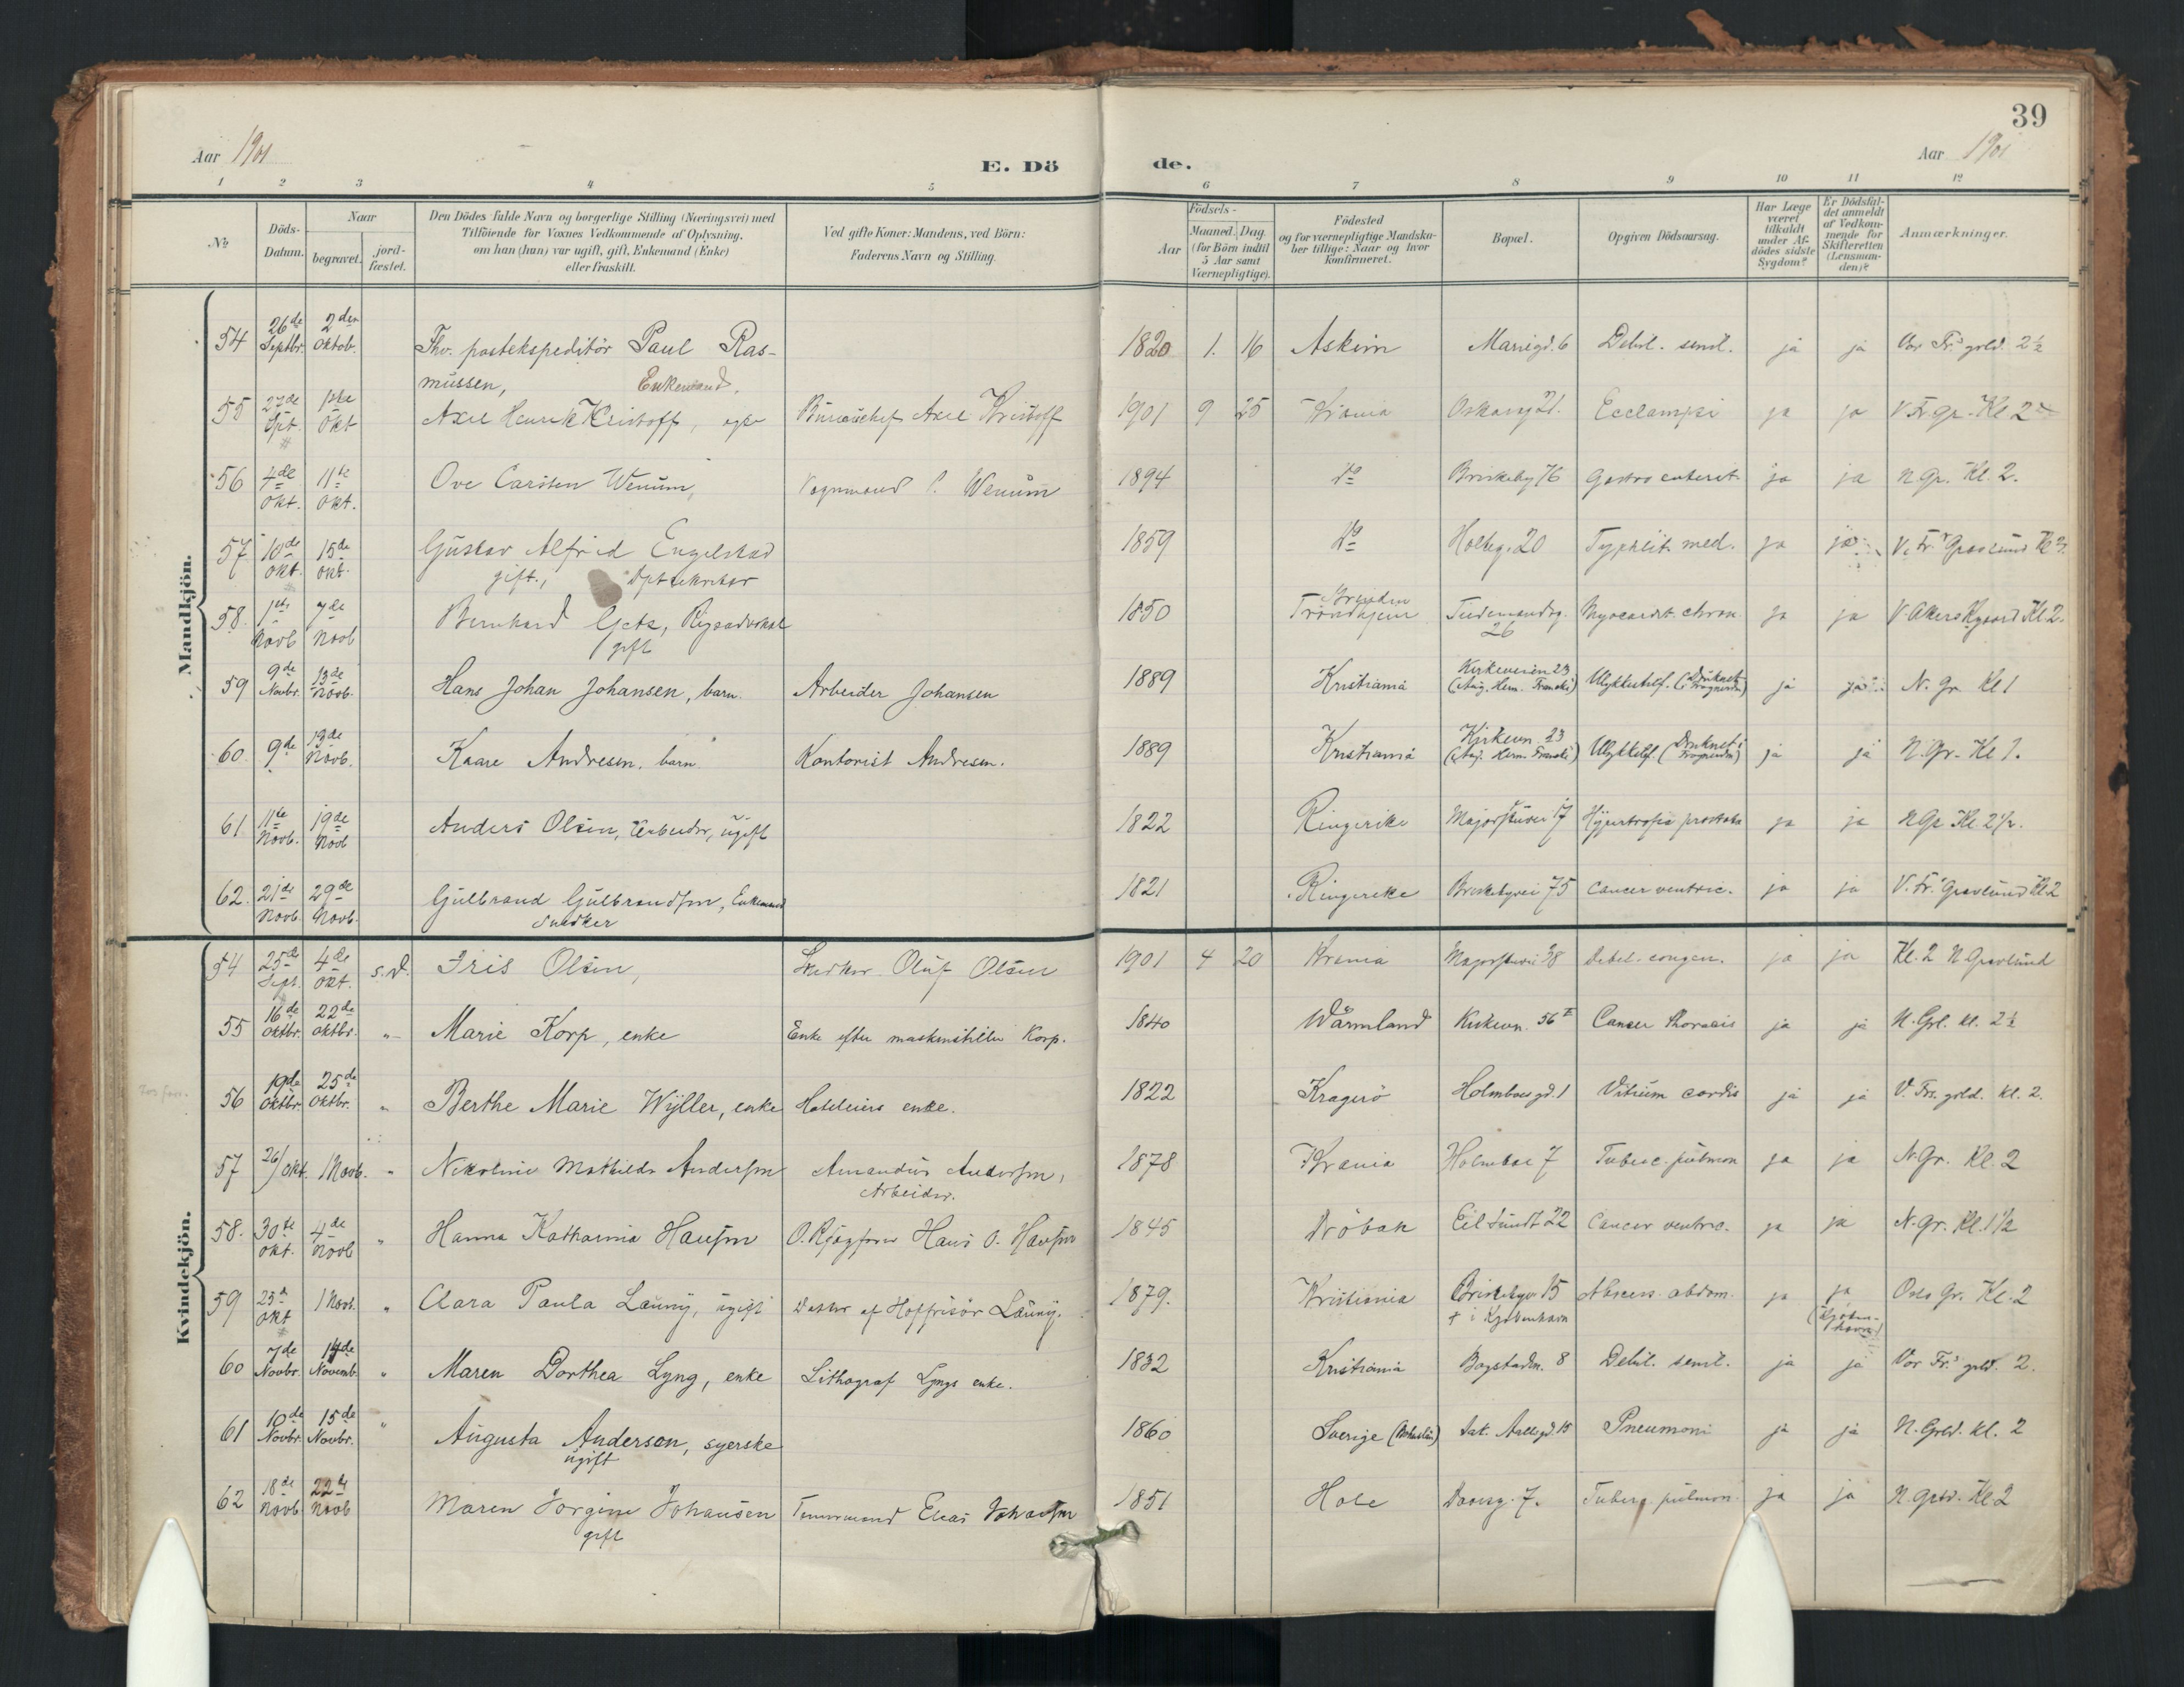 39
Aar 1901
E. Döde.
Aar 1901
1 2 3 4 5 6 7 8 9 10 11 12
№
Döds-Datum.
Naar
begravet.
jord-fæstet.
Den Dödes fulde Navn og borgerlige Stilling (Næringsvei) med
Tilföiende for Voxnes Vedkommende af Oplysning,
om han (hun) var ugift, gift, Enkemand (Enke)
eller fraskilt.
Ved gifte Koner: Mandens, ved Börn:
Faderens Navn og Stilling.
Födsels-
Aar
Maaned. Dag.
(for Börn indtil
5 Aar samt
Værnepligtige).
Födested
og for værnepligtige Mandska-
ber tillige: Naar og hvor
konfirmeret.
Bopæl.
Opgiven Dödsaarsag.
Har Læge
været
tilkaldt
under Af-
dödes sidste
Sygdom?
Er Dödsfal-
det anmeldt
af Vedkom-
mende for
Skifteretten
(Lensman-
den)?
Anmærkninger.
Mandkjön.
54 26de Septbr. 2den Oktob. Fhv. postekspeditör Paul Ras- 1820 1. 16 Askim Marieġd. 6 Debil. senil. ja ja Vor Fr.s grld. 2½
mussen, Enkemand.
55 27de Spt. 1ste Okt Axel Henrik Kristoff, Bureauchef Axel Kristoff 1901 9 25 Krania Oscarsg 21. Ecclampsi ja ja V. Fr. gr. Kl 2
56 4de Okt. 11te Okt. Ove Carsten Wenum, Vognmand Wenum 1894 do Briskeby 76 Gastro enterit. ja ja N. Gr. Kl. 2.
57 10de Okt. 15de Okt. Gustav Alfred Engelstad 1859 do Holteg. 20 Typhlit. med. ja ja V. Fr.s Gravlund Kl 2.
gift,
58. 1ste Novb 7de Novb Bernhard Getz, Rigsadvokat 1850 Trondhjem Tidemandsg. 26 Myocardit. chron. ja ja V. Akers Kgaard Kl. 2.
gift
59 9de Novbr. 13de Novb. Hans Johan Johansen, barn. Arbeider Johansen 1889 Kristiania Kirkeveien 23 Ulykkestilf. ja ja N. Gr. Kl 1
60. 9de 13de Novb. Kaare Andresen, barn. Kontorist Andresen. 1889 Kristiania Kirkevn. 23 ja ja N. Gr. Kl 1.
61 11te Novb. 19de Novb Anders Olsen, Arbeider, ugift 1822 Ringerike Majorstuvei 17 Hypertrofia prostata ja ja N Gr Kl. 2½.
62. 21de Novb. 29de Novb. Gulbrand Gulbrandsen, Enkemand 1821 Ringerike Briskebyvei 75 Cancer ventric. ja ja V. Fr.s Gravlund Kl. 2
Snedker
Kvindekjön.
54 25de Sept. 4de Okt. s. D. Iris Olsen, Snedker Oluf Olsen 1901 4 20 Krania Majorstuvei 38 Debil. congen. ja ja Kl. 2 N Gravlund
55 16de Oktbr. 22de Oktbr. " Marie Korp, enke Enke efter maskinstiller Korp. 1840 Wärmland Kirkevn. 56 II Cancer thoracis ja ja N. Grl. kl. 2½
56 19de Oktbr. 25de Oktbr. " Berthe Marie Wÿller, enke Hoteleiers enke. 1822 Kragerö Holmboesgd. 1 Vitium cordis ja ja V. Frs. grld. kl. 2.
57 26/Okt. 1 Novb. " Nikoline Mathilde Andersen Amandus Andersen, 1878 Krania Holmboe 7 Tuberc. pulmon ja ja N. Gr. Kl. 2
Arbeider.
58. 30te Okt. 4de Novb " Hanna Katharina Hansen Hans O. Hansen 1845 Dröbak Eil Sundt 22 Cancer ventric. ja ja N. Gr. Kl. 1½
59 25de Okt 1 Novb. " Clara Paula Launy, ugift Datter af Hoffrisör Launy. 1879. Kristiania Briskebyv 15 Abscess. abdom. ja ja Oslo Gr. Kl. 2
† i Kjøbenhavn (Kjøben-havn)
60 7de Novbr. 14de Novemb. " Maren Dorthea Lyng, enke Lithograf Lyngs enke. 1832 Kristiania Bogstadvn. 8 Debil. senil. ja ja Vor Fr.s grld. 2.
61 10de Novbr. 15de Novbr. " Augusta Anderson, syerske 1860 Sverige Jak. Aallsgd. 15 Pneumoni ja ja N. Grld. kl. 2
ugift
62 18de Novb. 22de Novb Maren Jorgine Johansen Tømmermand Elias Johansen 1851 Hole Daasg. 7. Tuberc. pulmon. ja ja N. Grld. Kl 2
gift